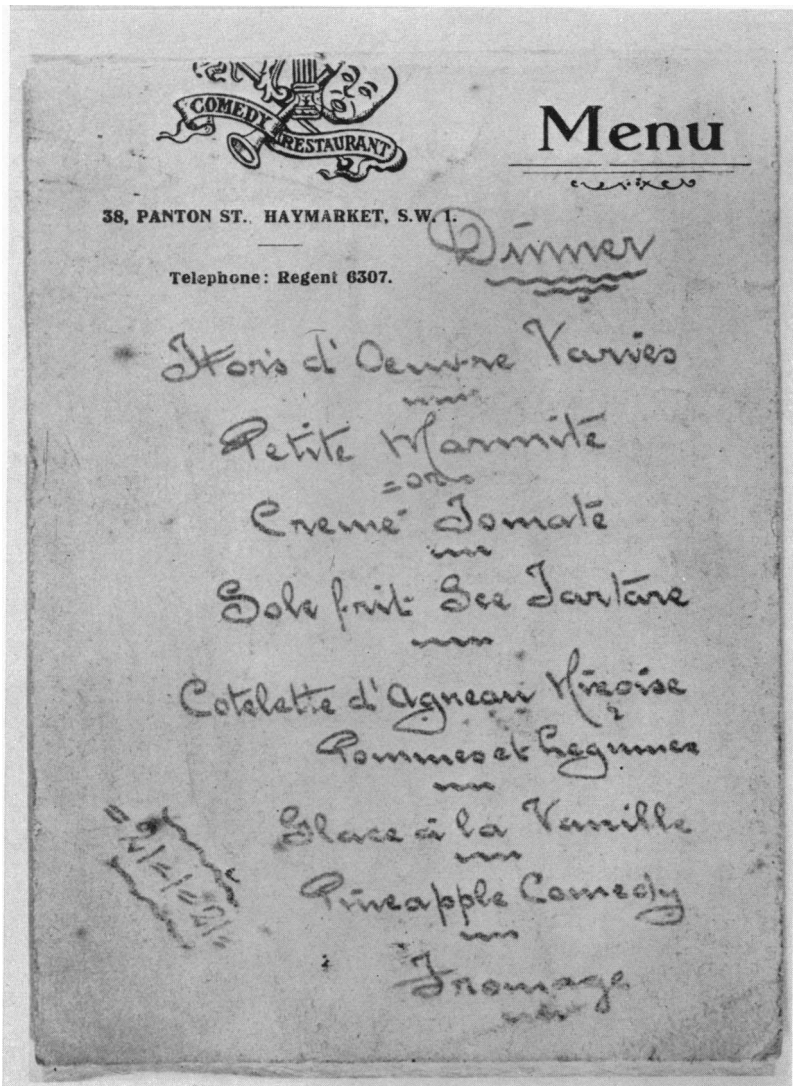 COMEDY RESTAURANT
Menu
38, PANTON ST., HAYMARKET, S.W. 1.
Telephone: Regent 6307.
Dinner
Hors d'Oeuvre Varies
Petite Marmite
=or=
Creme Tomate
Sole frit Sce Tartare
Cotelette d'Agneau Niçoise
Pommes et Legumes
Glace à la Vanille
=21=1=21=
Pineapple Comedy
Fromage